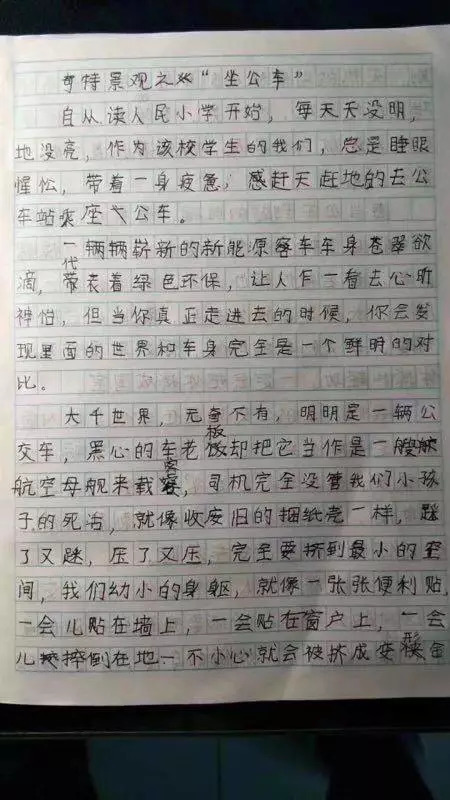 奇特景观之 “坐公车”
自从读人民小学开始，每天天没明，
地没亮，作为该校学生的我们，总是睡眼
惺忪，带着一身疲惫，感赶天赶地的去公
车站乘座公车。
一辆辆崭新的新能源客车车身苍翠欲
滴，代表着绿色环保，让人乍一看去心旷
神怡，但当你真正走进去的时候，你会发
现里面的世界和车身完全是一个鲜明的对
比。
大千世界，无奇不有，明明是一辆公
交车，黑心的车老板却把它当作是一艘
航空母舰来载客，司机完全没管我们小孩
子的死活，就像收废旧的捆纸壳一样，踩
了又踩，压了又压，完全要挤到最小的空
间，我们幼小的身躯，就像一张张便利贴，
一会儿贴在墙上，一会贴在窗户上，一会
儿摔倒在地一不小心就会被挤成变形金